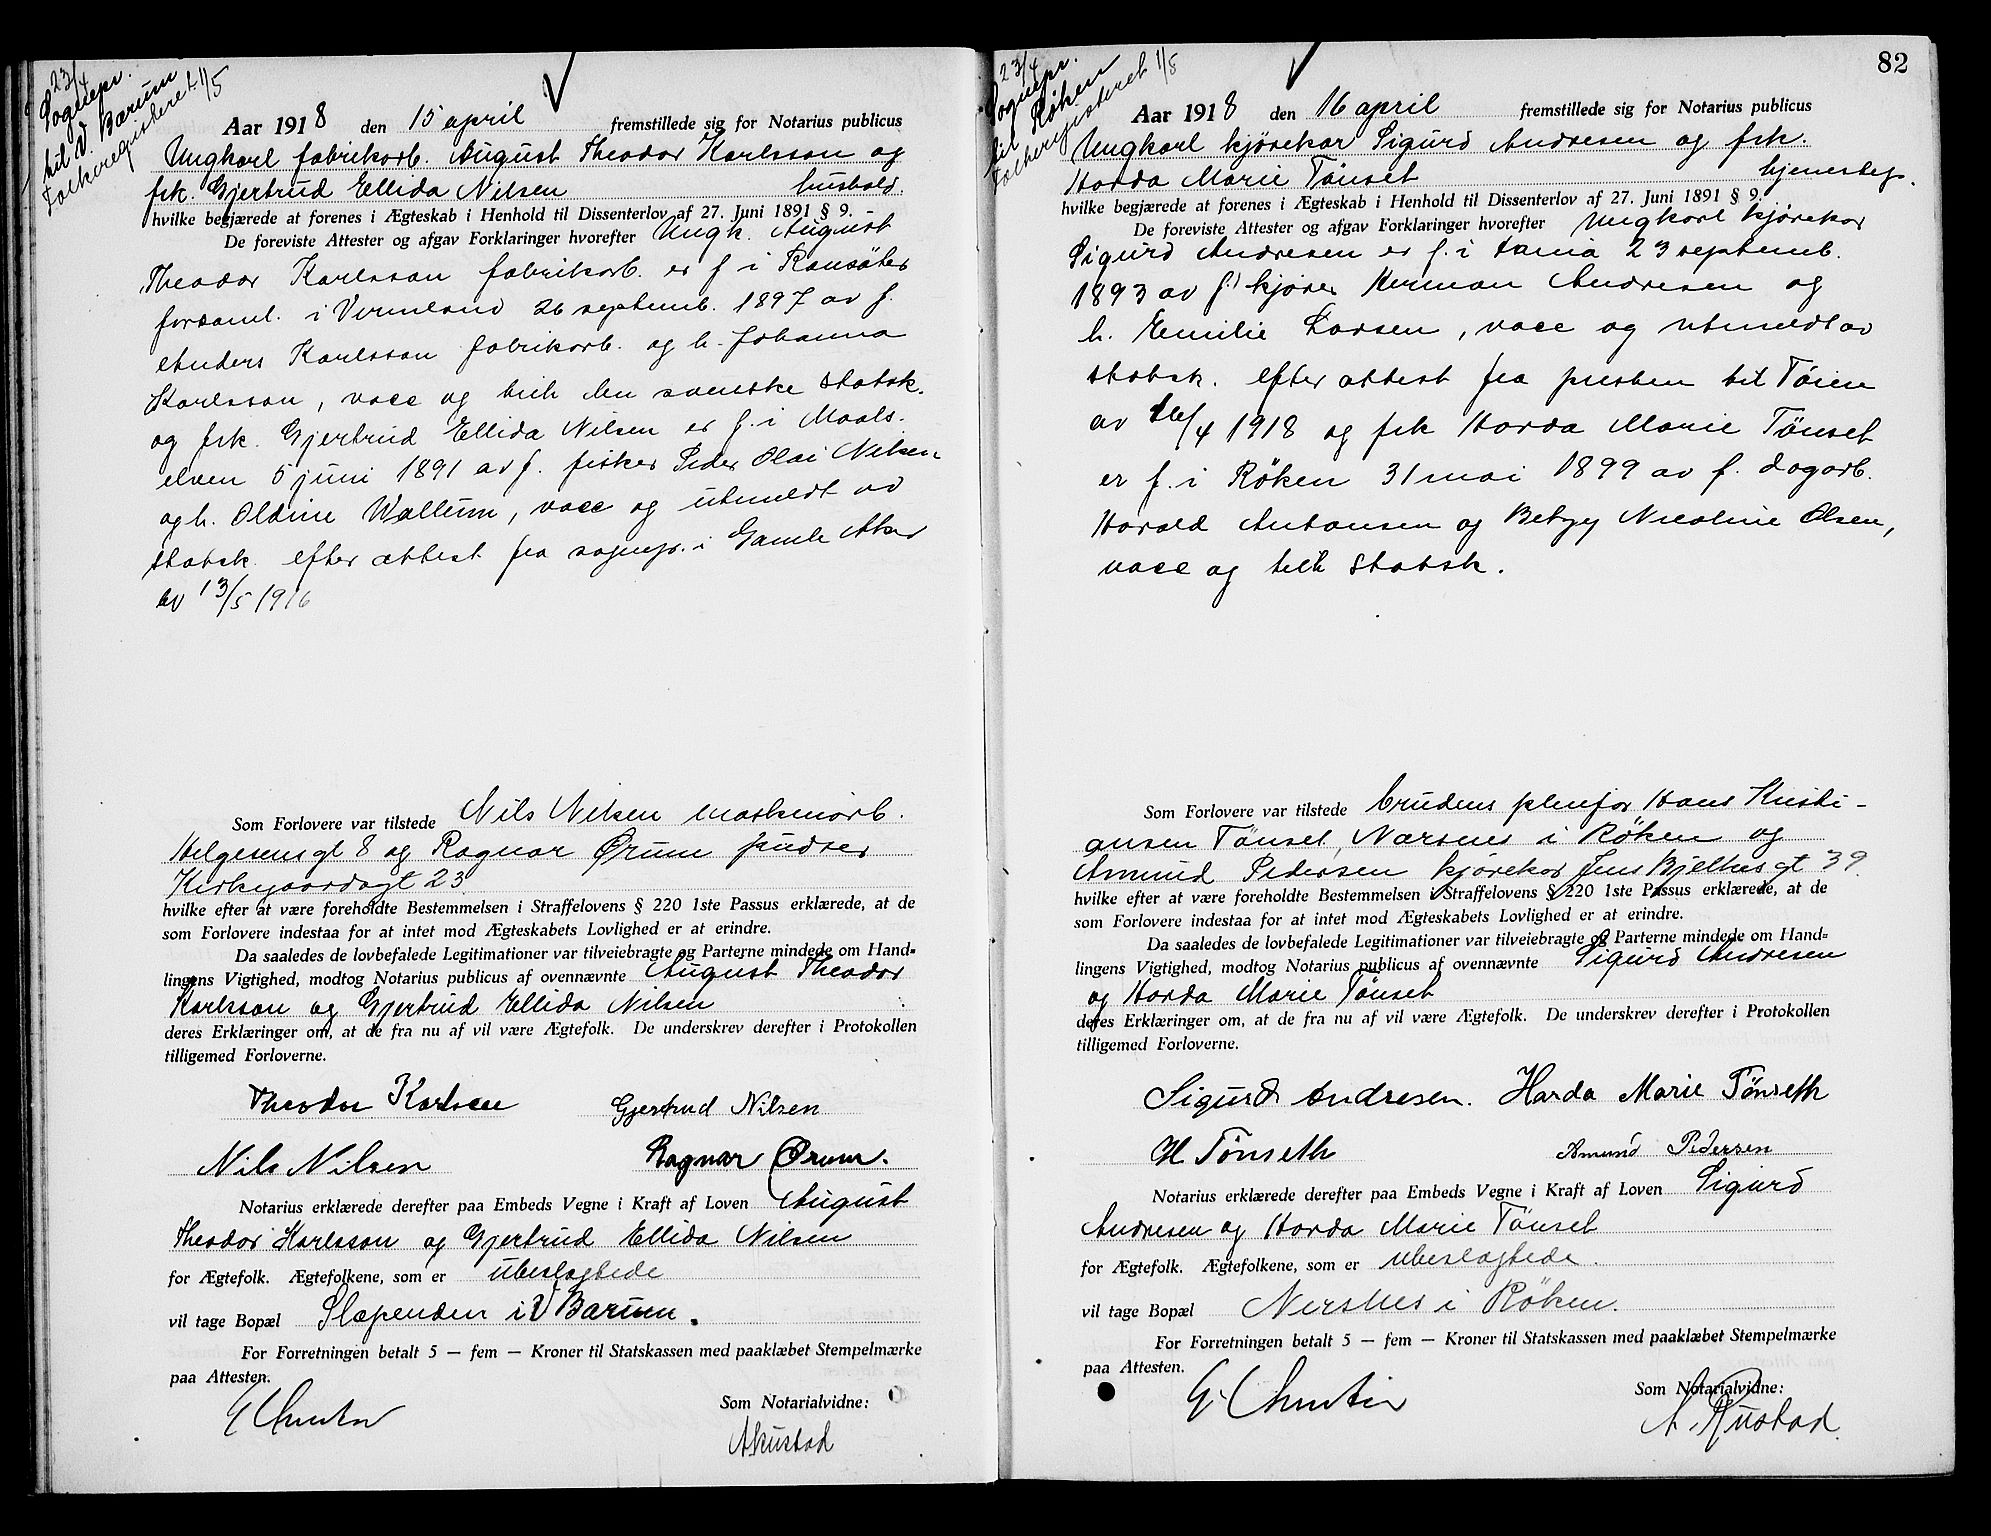 23/4
Sognepr.
til V. Bærum
Folkeregisteret 1/5
Aar 1918 den 15 april fremstillede sig for Notarius publicus
Ungkarl fabrikarb. August Theodor Karlsson og
frk. Gjertrud Ellida Nilsen hushold.
hvilke begjærede at forenes i Ægteskab i Henhold til Dissenterlov af 27. Juni 1891 § 9.
De foreviste Attester og afgav Forklaringer hvorefter Ungk. August
Theodor Karlsson fabrikarb. er f. i Ransäter
forsaml. i Vermland 26 septemb. 1897 av f.
Anders Karlsson fabrikarb. og h. Johanna
Karlsson, vacc og tilh den svenske statsk.
og frk. Gjertrud Ellida Nilsen er f. i Maals-
elven 5 juni 1891 av f. fisker Peder Olai Nilsen
og h. Oldine Wallum, vacc og utmeldt av
statsk. efter attest fra sognepr. i Gamle Aker
av 13/5 1916
Som Forlovere var tilstede Nils Nilsen maskinarb.
Helgesensgt 8 og Ragnar Ørum pudser
Kirkegaardsgt 23.
hvilke efter at være foreholdte Bestemmelsen i Straffelovens § 220 1ste Passus erklærede, at de
som Forlovere indestaa for at intet mod Ægteskabets Lovlighed er at erindre.
Da saaledes de lovbefalede Legitimationer var tilveiebragte og Parterne mindede om Hand-
lingens Vigtighed, modtog Notarius publicus af ovennævnte August Theodor
Karlsson og Gjertrud Ellida Nilsen
deres Erklæringer om, at de fra nu af vil være Ægtefolk. De underskrev derefter i Protokollen
tilligemed Forloverne.
Theodor Karlsen Gjertrud Nilsen
Nils Nilsen Ragnar Ørum.
Notarius erklærede derefter paa Embeds Vegne i Kraft af Loven August
Theodor Karlsson og Gjertrud Ellida Nilsen
for Ægtefolk. Ægtefolkene, som er ubeslagtede
vil tage Bopæl Slæpenden i V Bærum.
For Forretningen betalt 5 — fem — Kroner til Statskassen med paaklæbet Stempelmærke
paa Attesten.
Som Notarialvidne:
A Rustad
82
23/4
Sognepr.
til Røken
Folkeregisteret 1/5
Aar 1918 den 16 april fremstillede sig for Notarius publicus
Ungkarl kjørekar Sigurd Andresen og frk.
Harda Marie Tönset tjenestep.
hvilke begjærede at forenes i Ægteskab i Henhold til Dissenterlov af 27. Juni 1891 § 9.
De foreviste Attester og afgav Forklaringer hvorefter Ungkarl kjørekar
Sigurd Andresen er f. i 23 septemb.
1893 av f. kjører Herman Andresen og
h. Emilie Larsen, vacc og utmeldt av
statsk. efter attest fra presten til Töien
av 16/4 1918 og frk Harda Marie Tönset
er f. i Röken 31 mai 1899 av f. dagarb.
Harald Antonsen og Betzy Nicoline Olsen,
vacc og tilh statsk.
Som Forlovere var tilstede brudens pleiefar Hans Kristi-
ansen Tönset, Nærsnes i Röken og
Amund Pedersen kjørekar Jens Bjelkes gt 39.
hvilke efter at være foreholdte Bestemmelsen i Straffelovens § 220 1ste Passus erklærede, at de
som Forlovere indestaa for at intet mod Ægteskabets Lovlighed er at erindre.
Da saaledes de lovbefalede Legitimationer var tilveiebragte og Parterne mindede om Hand-
lingens Vigtighed, modtog Notarius publicus af ovennævnte Sigurd Andresen
og Harda Marie Tönset
deres Erklæringer om, at de fra nu af vil være Ægtefolk. De underskrev derefter i Protokollen
tilligemed Forloverne.
Sigurd Andresen. Harda Marie Tönseth
H Tönseth Amund Pedersen
Notarius erklærede derefter paa Embeds Vegne i Kraft af Loven Sigurd
Andresen og Harda Marie Tönset
for Ægtefolk. Ægtefolkene, som er ubeslagtede.
vil tage Bopæl Nersnes i Röken.
For Forretningen betalt 5 — fem — Kroner til Statskassen med paaklæbet Stempelmærke
paa Attesten.
Som Notarialvidne:
A. Rustad